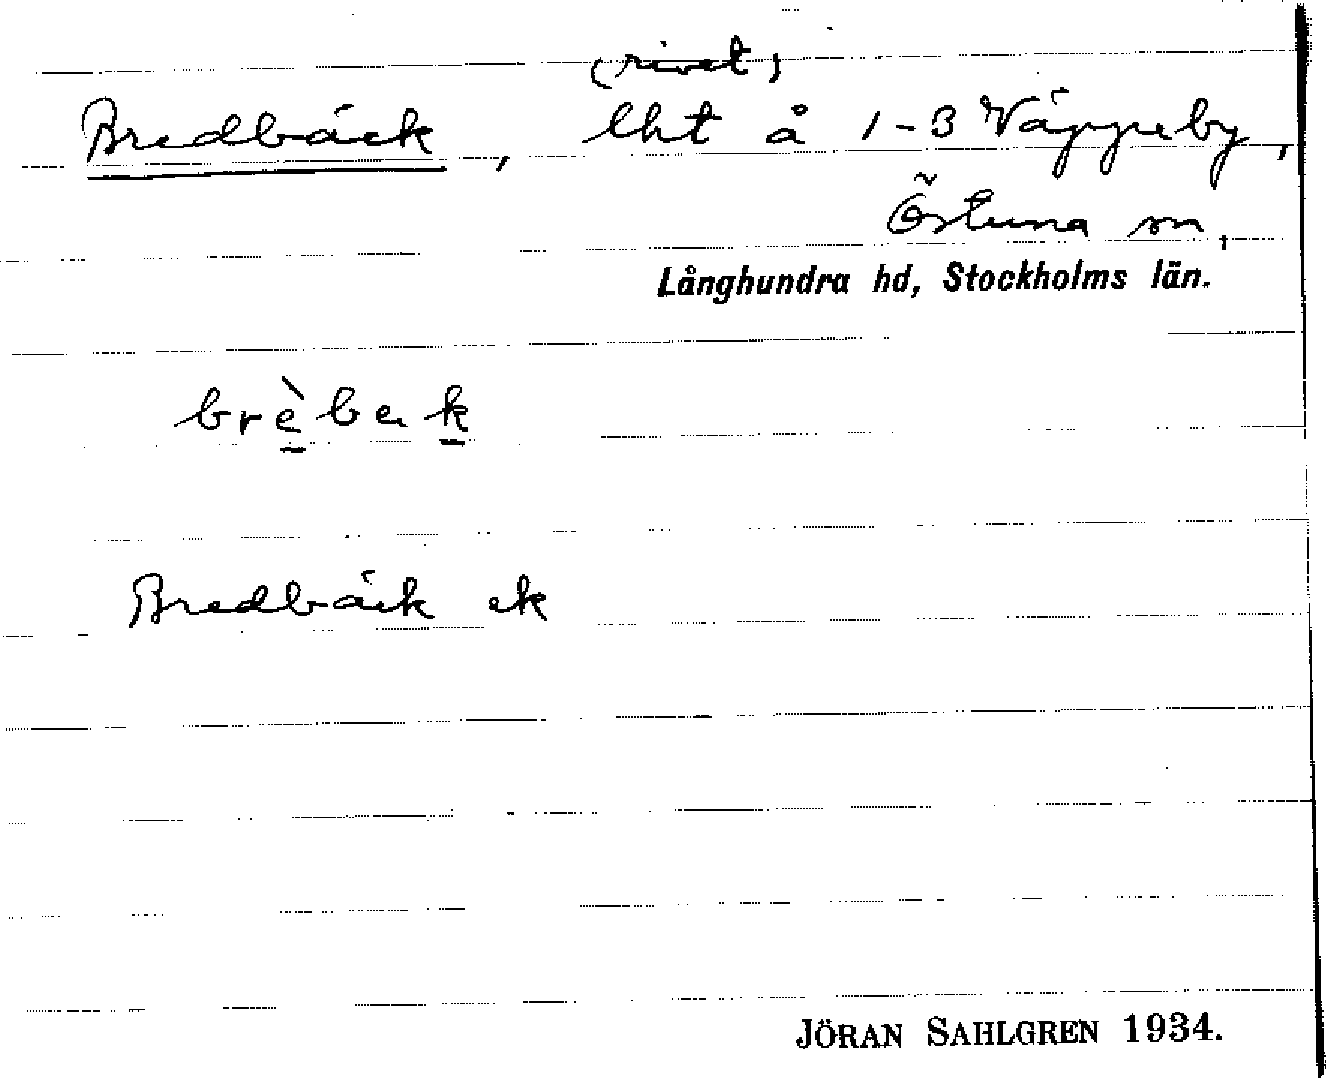 (rivet)
Bredbäck, lht å 1-3 Väppeby,
Östuna sn,
Långhundra hd, Stockholms län.
brèbek
Bredbäck ek
JÖRAN SAHLGREN 1934.